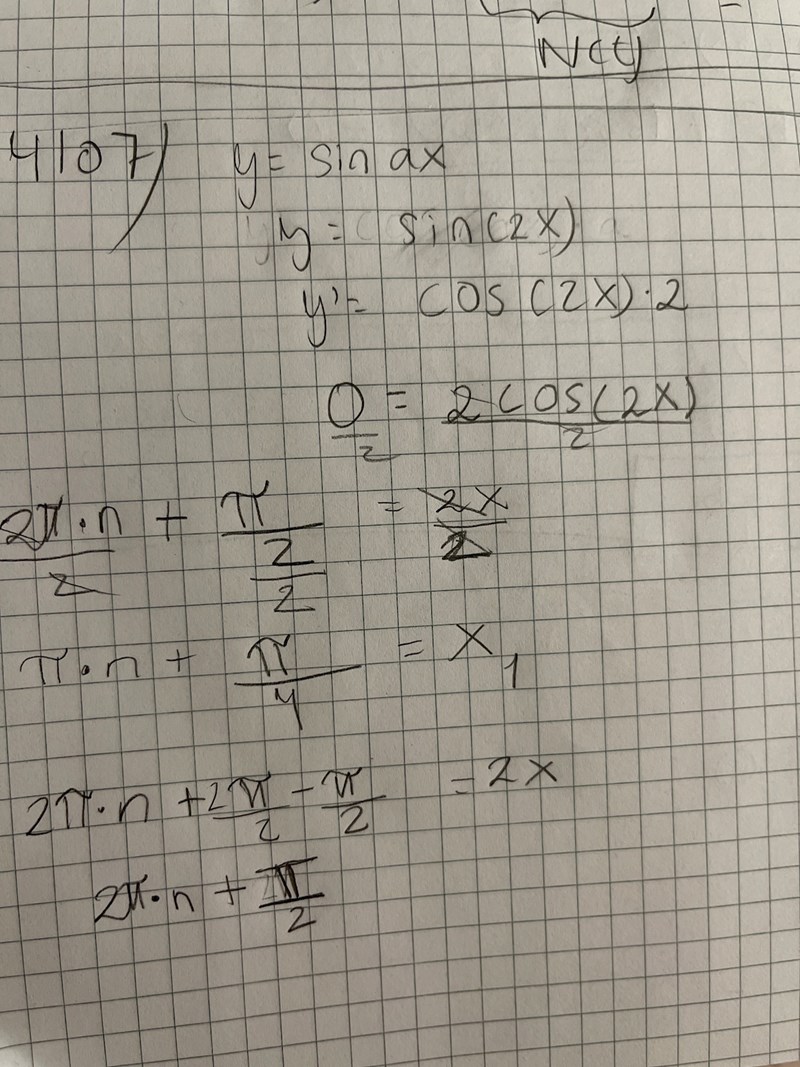 N(t)
4107) y = sin ax
y = sin(2x)
y' = cos(2x)·2
0/2 = 2cos(2x)/2
2π·n/2 + π/2/2 = 2x/2
π·n + π/4 = x₁
2π·n + 2π/2 - π/2 = 2x
2π·n + π/2